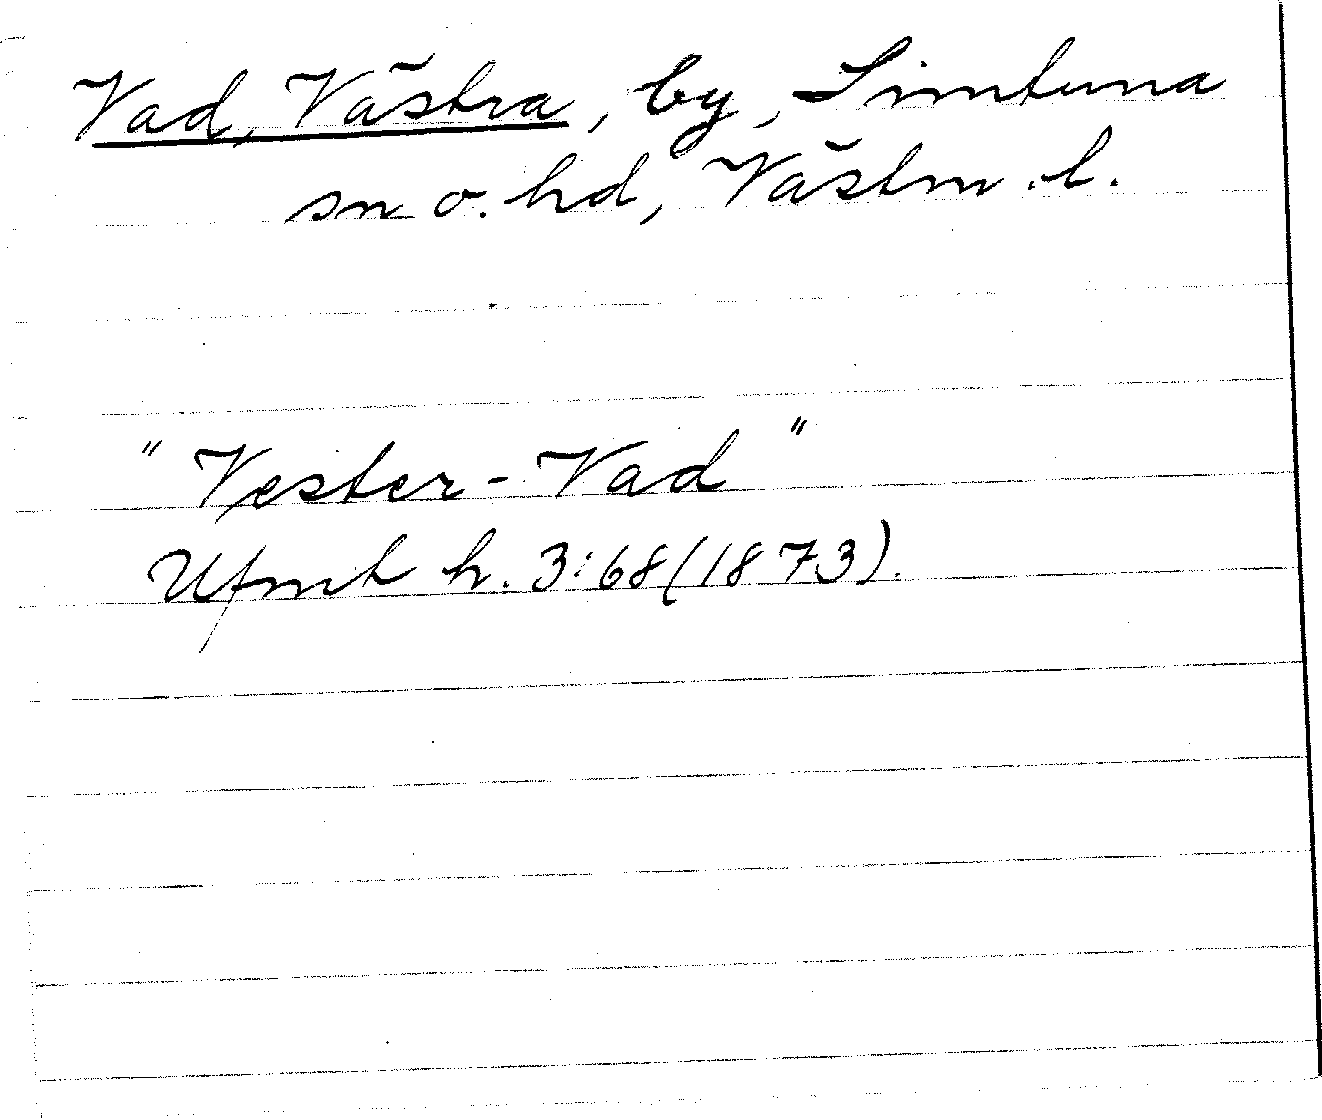 Vad, Västra, by, Simtuna
sn o. hd, Västm. l.
"Vester-Vad"
Ufmt h. 3:68 (1873).